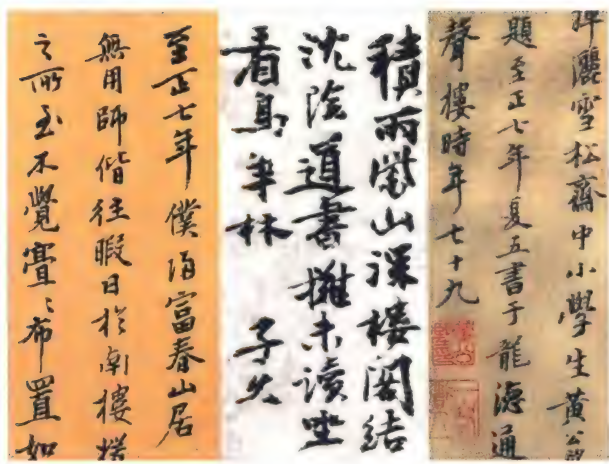 揮灑雪松齋中小學生黃公望
題至正七年夏五書于龍德通
聲樓時年七十九
積雨縈山深樓閣結
沈陰道書攤未讀坐
看鳥爭林 子久
至正七年僕歸富春山居
無用師偕往暇日於南樓援
之所至不覺亹〻布置如